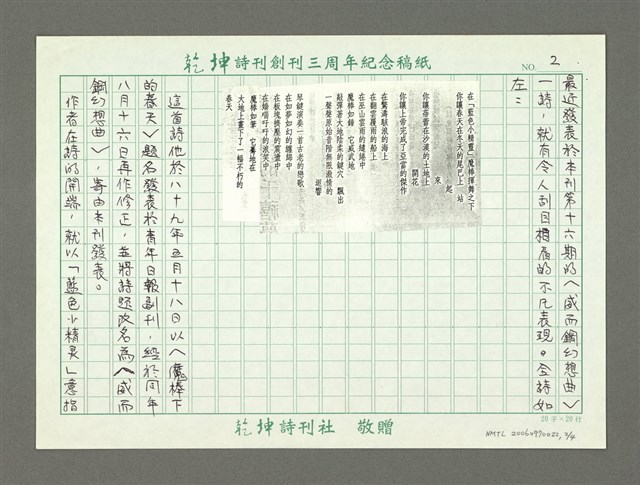 乾坤詩刊創刊三周年紀念稿紙
NO. 2
最近發表於本刊第十六期的〈威而鋼幻想曲〉
一詩，就有令人刮目相看的不凡表現。全詩如
左：
在「藍色小精靈」魔棒揮舞之下
你讓春天在冬天的尾巴上 站
起
來
你讓蓓蕾在沙漠的土地上
開花
你讓上帝完成了亞當的傑作
在驚濤駭浪的海上
在翻雲覆雨的船上
在巫山雲雨的縫隙中
魔棒如鎚 它威武地
敲彈著大地陰柔的鍵穴 飄出
一聲聲原始音階無限激情的
迴響
琴鍵演奏一首古老的戀歌
在如夢如幻的纏綿中
在板塊擠壓的震盪中
在嬌喘吁吁的浪笑中
魔棒如筆 它驀地在
大地上畫下了一幅不朽的
春天
這首詩他於八十九年五月十八日以〈魔棒下
的春天〉題名發表於青年日報副刊，經於同年
八月十六日再作修正，並將詩題改名為〈威而
鋼幻想曲〉寄由本刊發表。
作者在詩的開端，就以「藍色小精灵」意指
20字×20行
乾坤詩刊社 敬贈
NMTL 20060970022, 2/4